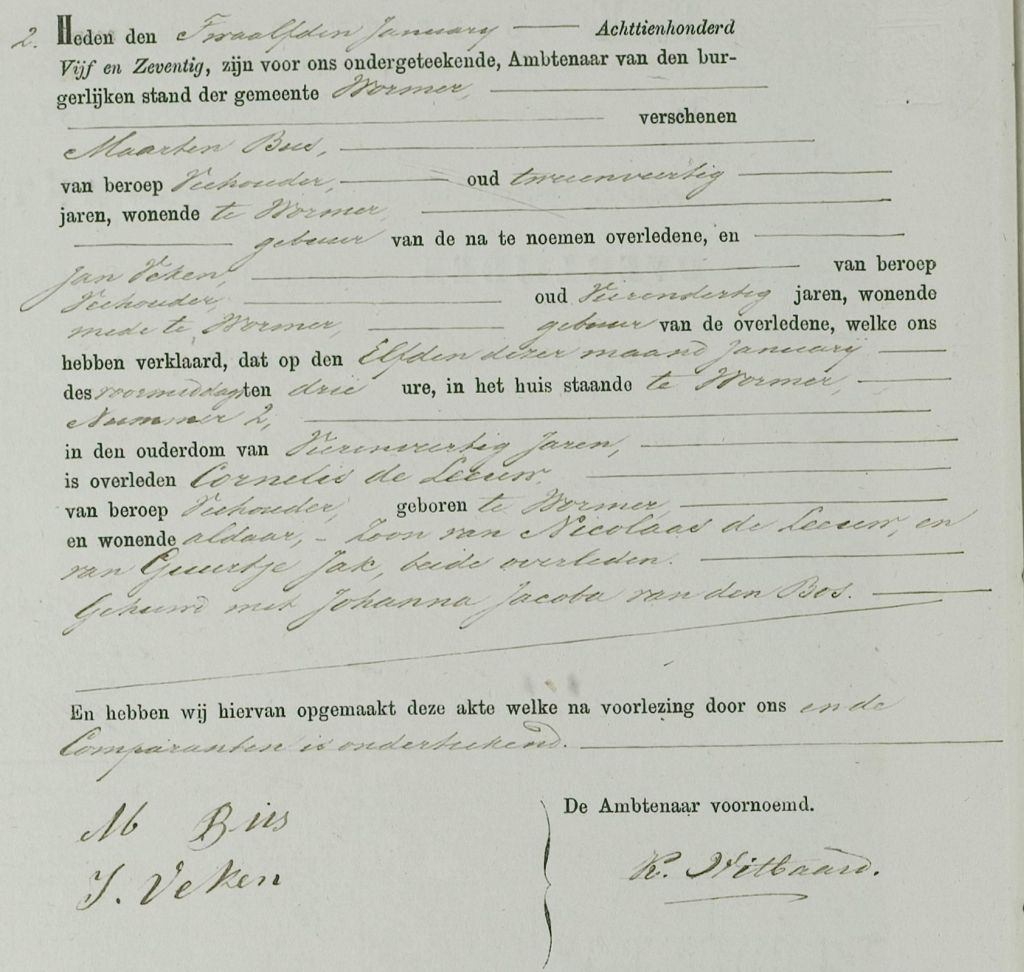 2. Heden den Twaalfden January Achttienhonderd
Vijf en Zeventig, zijn voor ons ondergeteekende, Ambtenaar van den bur-
gerlijken stand der gemeente Wormer,
verschenen
Maarten Bus,
van beroep Veehouder, oud tweeenveertig
jaren, wonende te Wormer,
gebuur van de na te noemen overledene, en
Jan Veken, van beroep
Veehouder, oud Vierendertig jaren, wonende
mede te Wormer, gebuur van de overledene, welke ons
hebben verklaard, dat op den Elfden dezer maand January
des voormiddags ten drie ure, in het huis staande te Wormer,
Nummer 2,
in den ouderdom van Vierenveertig Jaren,
is overleden Cornelis de Leeuw,
van beroep Veehouder, geboren te Wormer,
en wonende aldaar, - Zoon van Nicolaas de Leeuw, en
van Guurtje Jak, beide overleden.
Gehuwd met Johanna Jacoba van den Bos.
En hebben wij hiervan opgemaakt deze akte welke na voorlezing door ons en de
Comparanten is onderteekend.
De Ambtenaar voornoemd.
M Bus
J. Veken
K. Witbaard.